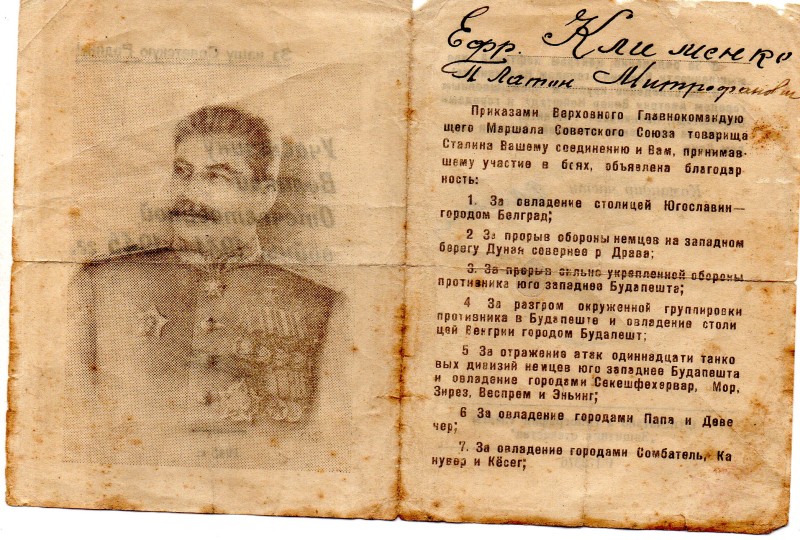 Ефр. Клименко
Платон Митрофанович
Приказами Верховного Главнокомандую
щего Маршала Советского Союза товарища
Сталина Вашему соединению и Вам, принимав-
шему участие в боях, объявлена благодар
ность:
1. За овладение столицей Югославии—
городом Белград;
2 За прорыв обороны немцев на западном
берегу Дуная совернее р Драва;
3. За прорыв сильно укрепленной обороны
противника юго западнее Будапешта;
4 За разгром окруженной группировки
противника в Будапеште и овладение столи
цей Венгрии городом Будапешт;
5 За отражение атак одиннадцати танко
вых дивизий немцев юго западнее Будапешта
и овладение городами Секешфехервар, Мор,
Зирез, Веспрем и Эньинг;
6 За овладение городами Папа и Деве
чер;
7. За овладение городами Сомбатель, Ка
нувар и Кёсег;